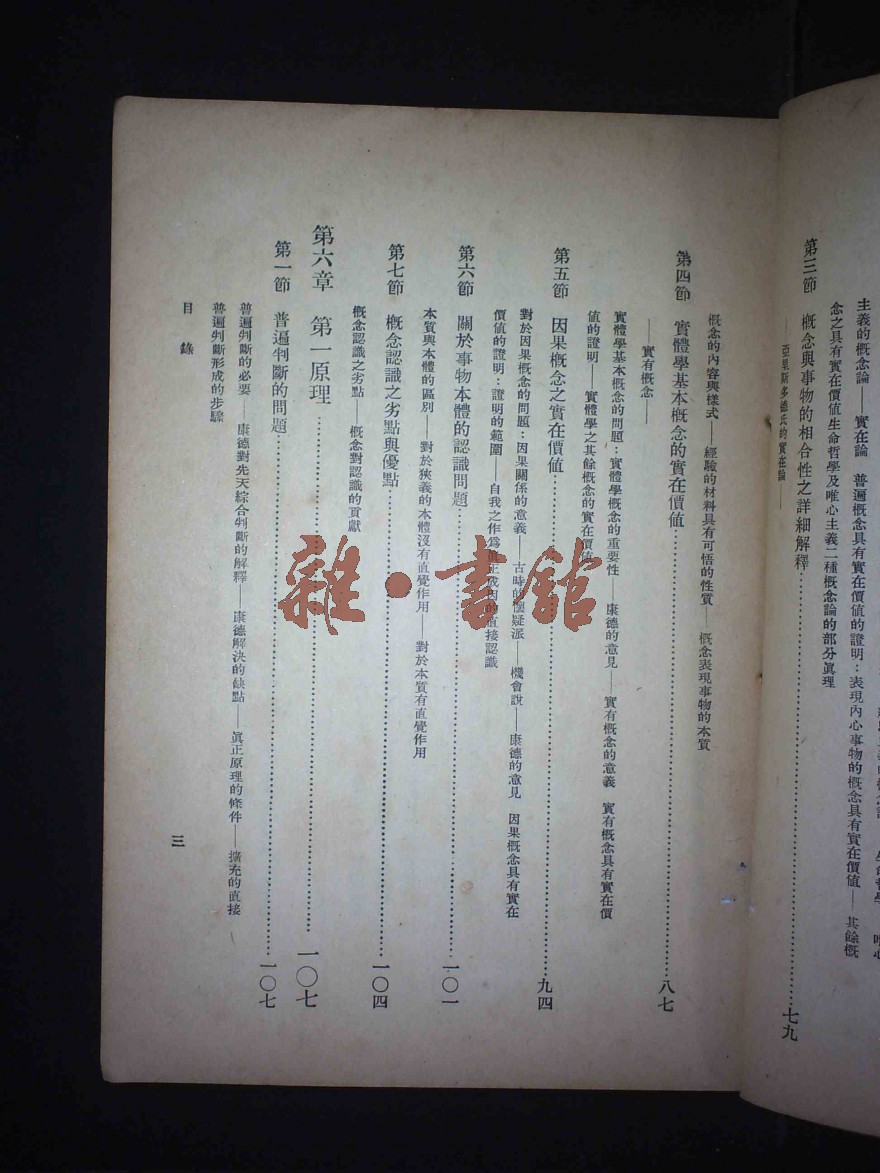 主義的概念論——實在論　普遍概念具有實在價值的證明：表現內心事物的概念具有實在價值——其餘概
念之具有實在價值生命哲學及唯心主義二種概念論的部分眞理
第三節　概念與事物的相合性之詳細解釋…………七九
亞里斯多德氏的實在論——
概念的內容與樣式——經驗的材料具有可悟的性質——概念表現事物的本質
第四節　實體學基本概念的實在價值…………八七
——實有概念——
實體學基本概念的問題：實體學概念的重要性——康德的意見——實有概念的意義　實有概念具有實在價
值的證明——實體學之其餘概念的實在價值
第五節　因果概念之實在價值…………九四
對於因果概念的問題：因果關係的意義——古時的懷疑派——機會說——康德的意見　因果概念具有實在
價值的證明：證明的範圍——自我之作爲眞正成因的直接認識
第六節　關於事物本體的認識問題…………一〇一
本質與本體的區別——對於狹義的本體沒有直覺作用——對於本質有直覺作用
第七節　概念認識之劣點與優點…………一〇四
概念認識之劣點——概念對認識的貢獻
第六章　第一原理…………一〇七
第一節　普遍判斷的問題…………一〇七
普遍判斷的必要——康德對先天綜合判斷的解釋——康德解決的缺點——眞正原理的條件——擴充的直接
普遍判斷形成的步驟
目錄
三
雜·書館